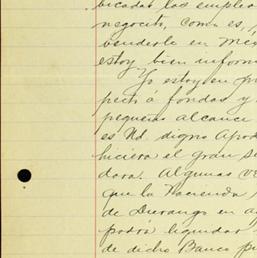 bicadas las emplea
negocito, como es,
venderlo en Méx
estoy bien inform
Yo estoy en
pecto á fondos y
pequeño alcance
es Ud. digno Apod
hiciera el gran se
dara. Algunas ve
que la Hacienda
de Durango en a
podrá liquidar
de dicho Banco